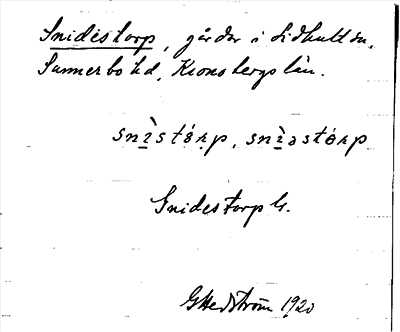 Snidestorp, gårdar i Lidhult sn,
Sunnerbo hd, Kronobergs län.
snì̱stórp, snì̱əstórp
Snidestorp G.
G Hedström 1920